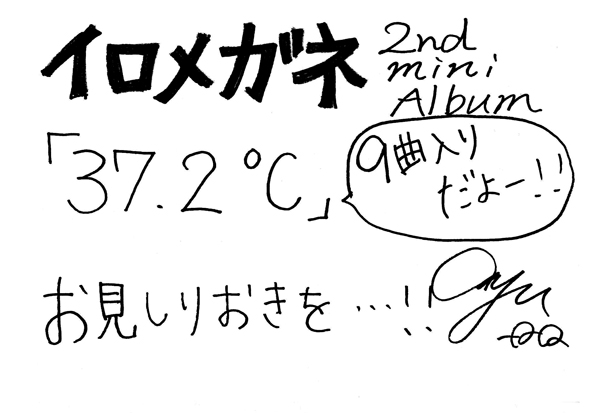 イロメガネ
2nd
mini
Album
「37.2℃」
9曲入り
だよー!!
お見しりおきを…!!
Ayu